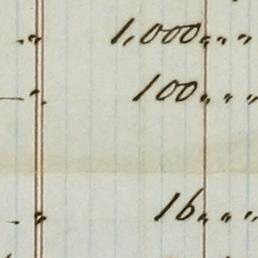 " 1,000 " "
" 100 " "
" 16 " "